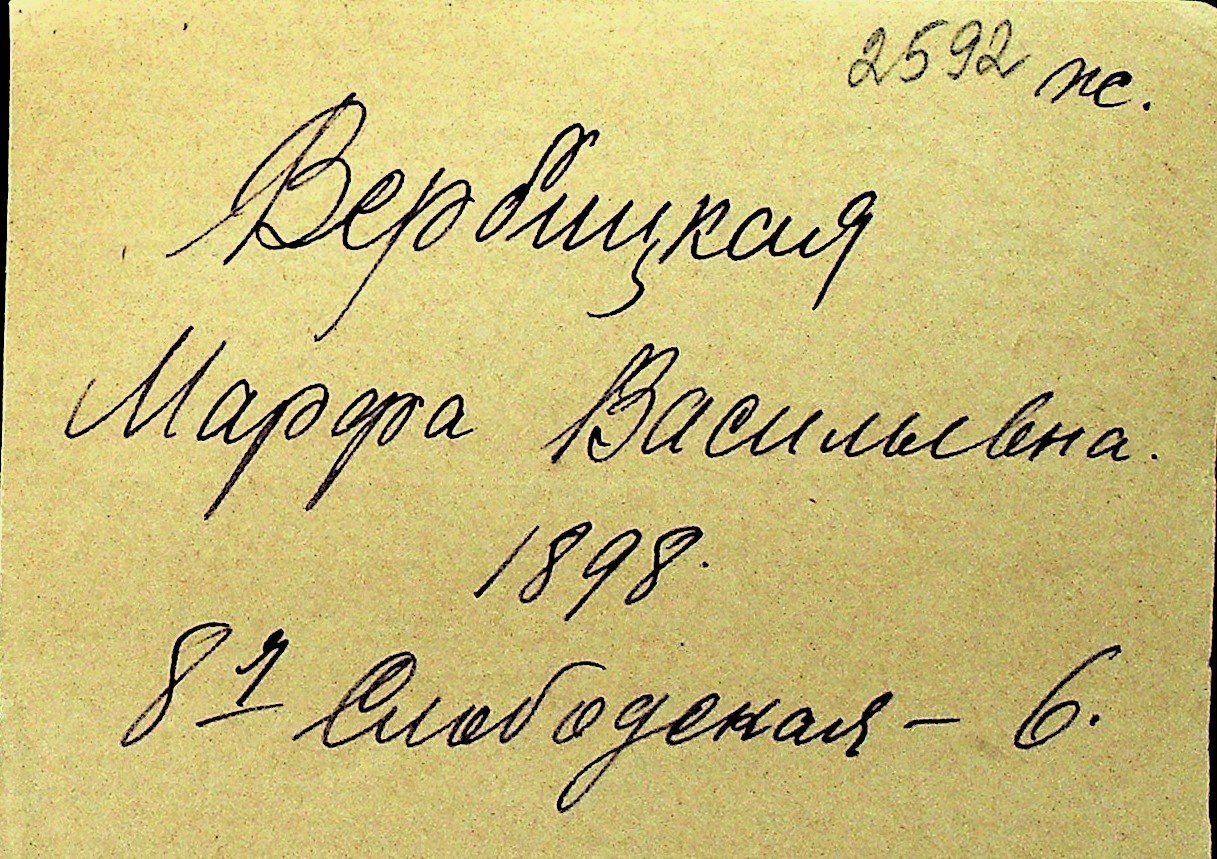 2592 ж.
Вербицкая
Марфа Васильевна.
1898.
8я Слободская – 6.